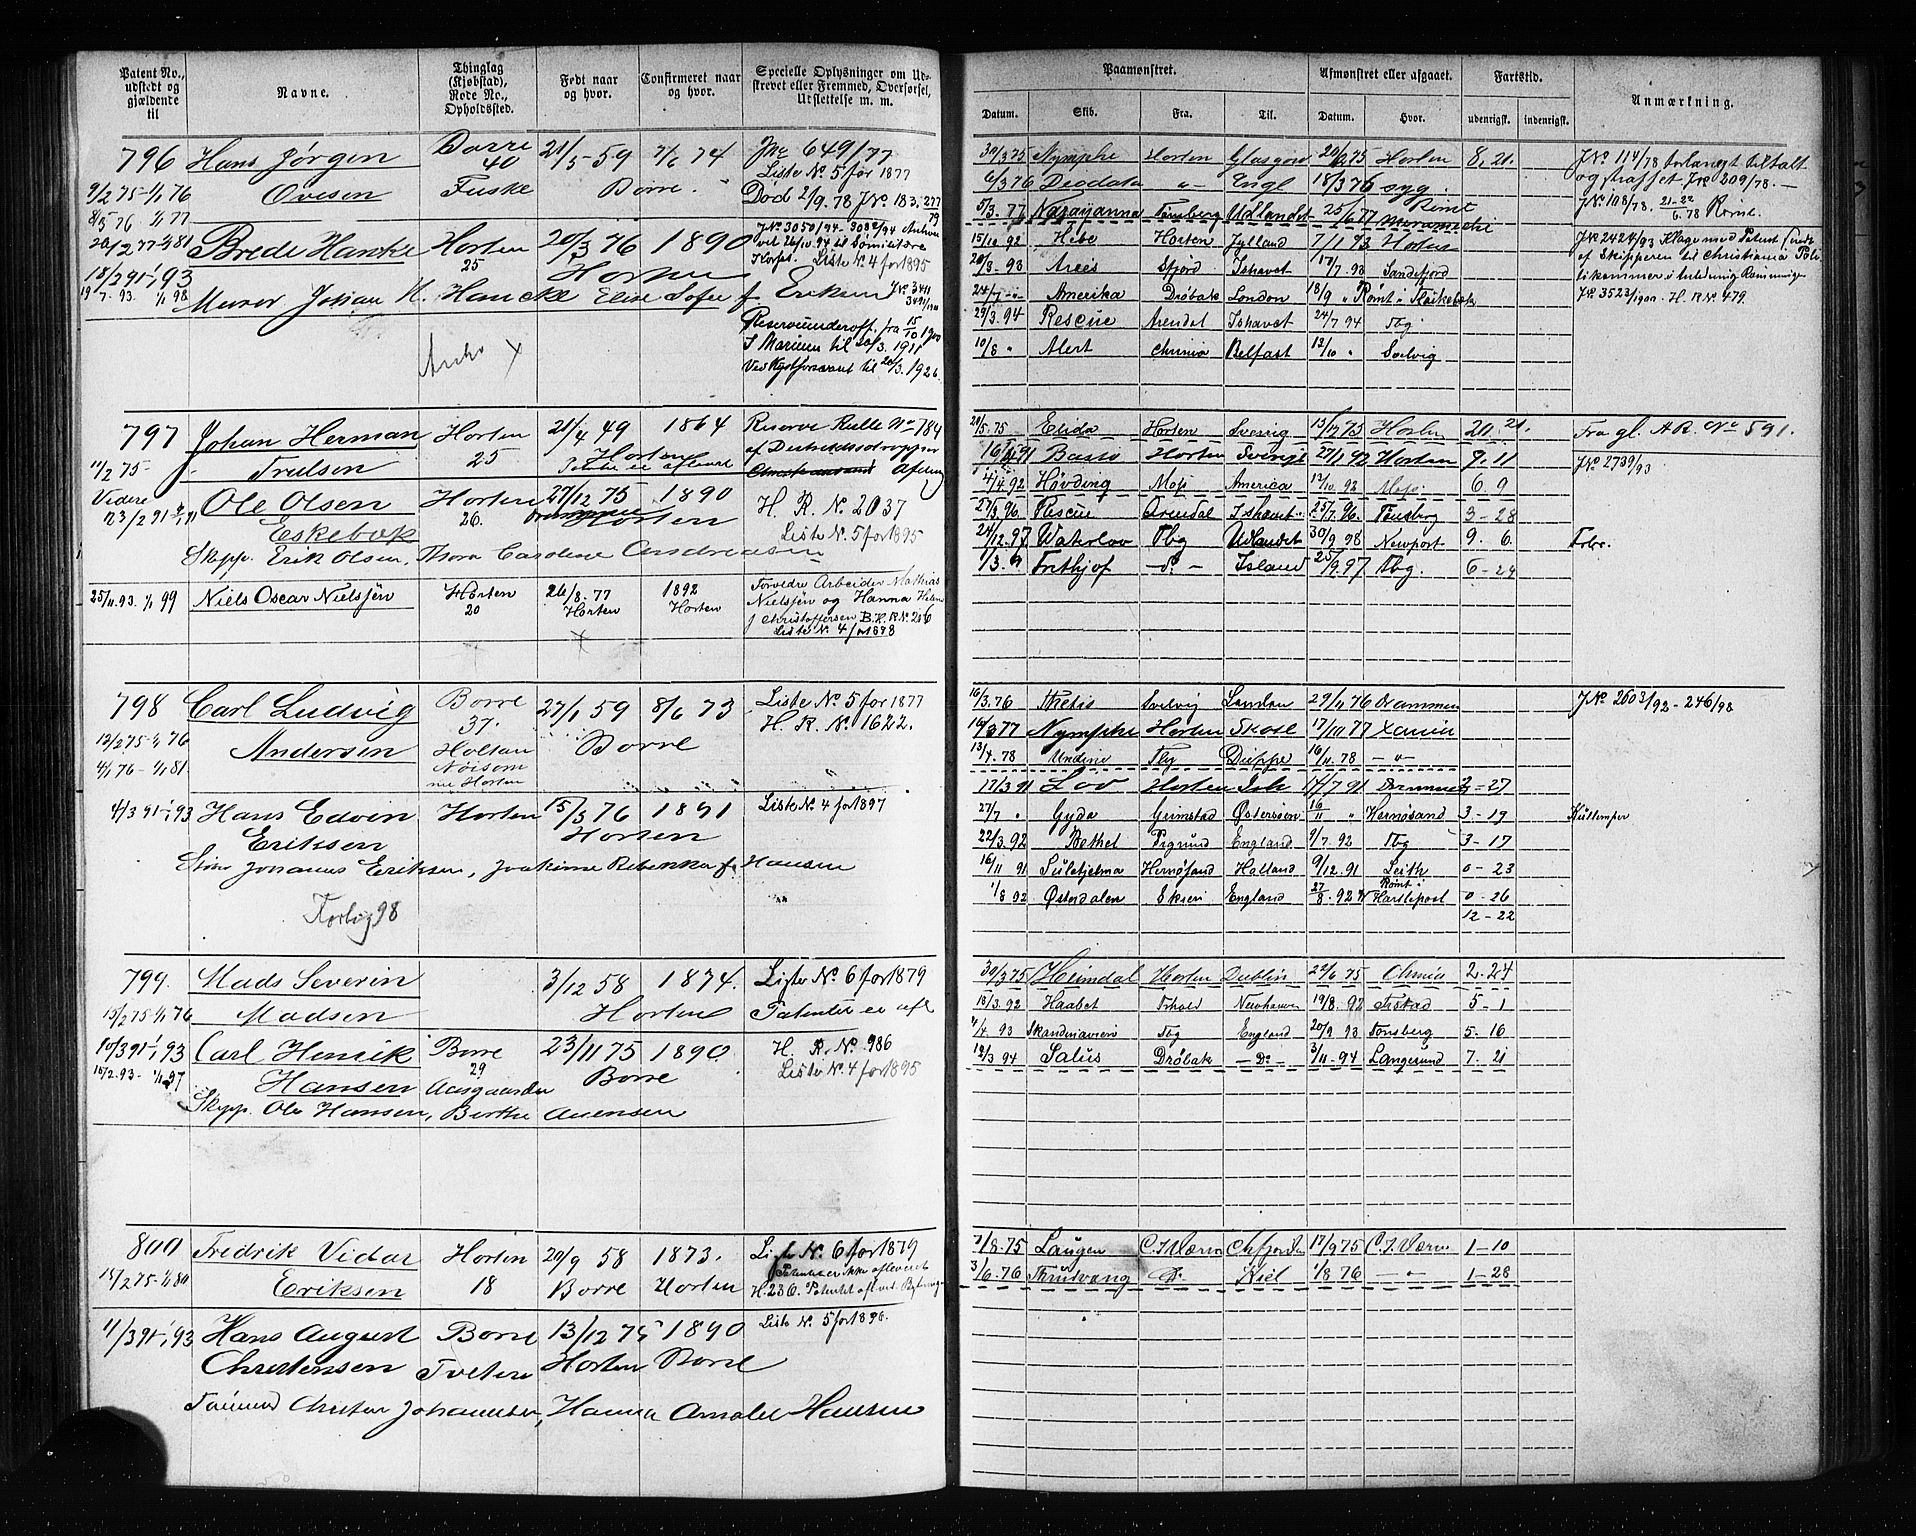 Patent No., udstedt og gjældende til
Navne.
Thinglag (Kjøbstad), Rode No., Opholdssted.
Født naar og hvor.
Confirmeret naar og hvor.
Specielle Oplysninger om Udskrevet eller Fremmed, Oversørsel, Udslettelse m. m.
Paamønstret.
Afmønstret eller afgaaet.
Fartstid.
Anmærkning.
Datum.
Skib.
Fra.
Til.
Datum.
Hvor.
udenrigsk.
indenrigsk.
796 Hans Jørgen Borre 21/5 59 7/6 74 JNo 649/77
9/2 75-1/1 76 Ovesen 40 Borre. Liste No. 5 for 1877
8/5 76 1/1 77 Død 2/9. 78 JNo 183. 277/79
20/2 77-1/1 81 Brede Hancke Horten 20/3 76 1890
25 Horten Liste No. 4 for 1895
18/2 91-1/1 93
19/7. 93. 1/1 98 Murer Johan H. Hancke Elise Sofie f Eriksen
Reserveunderoff. fra 15/10 1900
I Marinen til 20/3. 1911
Ved Kystforsvaret til 20/3. 1926
30/3 75 Nymphe Horten Glasgow 20/6 75 Horten 8. 21.
6/3 76 Deodata " Engl 18/3 76 syg.
5/3. 77 Narayanna Tønsberg Udlandet 25/6 77 Rømt
15/10 92 Hebe Horten Jylland 7/1 93 Horten
20/3. 93 Aries Ishavet 17/7. 93 Sandefjord
24/7 " Amerika Drøbak London 18/9 " Rømt i
29/3. 94 Rescue Arendal Ishavet 24/7 94 Tbg
10/8 " Alert Chrania Belfast 12/10 " Svelvig
JNo 114/78 forlangt tiltalt
og straffet JNo 209/78. —
JNo 108/78. 21-22/6. 78 Rømt.
JNo 2424/93 Klage med Patent sendt
af Skipperen til Christiania Poli
JNo 3523/1900. H. R. No. 479.
797 Johan Herman Horten 21/4 49 1864 Reserve Rulle No 784
11/2 75- Trulsen 25 Horten
Videre Ole Olsen Horten 27/12 75 1890 H. R. No. 2037
23/2 91-1/1 91 Eskebæk 26. Horten Liste No. 5 for 1895
Skipp. Erik Olsen, Thora Caroline Andreassen
25/11. 93. 1/1 99 Niels Oscar Nielsen Horten 26/8. 77 1892 Forvedre Arbeider Mathias
20 Horten Horten Nielsen og Hanna Helene
f Christoffersen B.H.R.No. 206
Liste No. 4 for 1898
20/5. 75 Elida Horten Sverrig 13/12 75 Horten 20. 21. Fra gl. A R. No 591.
Bastø Horten 27/1 92 Horten 9. 11 JNo 2739/93
14/4. 92 Høvding Moss America 12/10. 93 Moss. 6. 9
27/3 96. Rescue Arendal Ishavet 25/7. 96. Tønsberg 3-28
24/12. 97 Tbg Udlandet 30/9 98 Newport 9. 6.
1/3. 97 Frithjof -d- Island 25/9. 97 Tbg. 6-24
798 Carl Ludvig Borre 27/1 59 8/6 73 Liste No. 5 for 1877
37. H. R. No. 1622.
12/2 75-1/1 76 Andersen Holtan Borre
4/1 76-1/1 81. Nøisom
nu Horten
4/3 91-1/1 93 Hans Edvin Horten 15/3 76 1891 Liste No. 4 for 1897
Eriksen Horten
Johannes Eriksen, Joakime Rebekka f. Hansen
98
16/3. 76 Thetis Svelvig London 29/11 76 Drammen JNo. 2603/92 - 246/98
16/3 77 Nymphe Horten Skotl 17/11 77 Xania
13/4. 78 Undine Tbg Dieppe 16/11. 78 — " —
17/3 91 Lov Horten 14/7 91 2-27
27/7 " Gyda Grimstad Østersøen 16/11 " Hernøsand 3-19
22/3. 92 Bethel Prgrund England 9/7. 92 Tbg 3-17
16/11 91 Sulitjelma Hernøsand Holland 9/12. 91 Leith 0-23
1/8 92 Østerdalen Skien England 27/8. 92 Rømt i Hartlepool 0-26
12-22
799. Mads Severin 3/12 58 1874. Liste No. 6 for 1879
13/2 75-1/1 76 Madsen Horten Patentet er afl
10/3 91-1/1 93 Carl Henrik Borre 23/11 75 1890. H. R. No. 986
15/2. 93- 1/1 97 Hansen 29 Aasgaarden Borre Liste No. 4 for 1895
Skipp. Ole Hansen, Berthe
30/3 75 Heimdal Horten Dublin 22/6 75 Chania 2. 24
18/3. 92 Haabet 19/8. 92 5-1
11/4. 93 Skandinavien Tbg England 20/9 93 Tønsberg 5-16
12/3 94 Salus Drøbak -Do- 3/11-94 Langesund 7. 21
800 Fredrik Vidar Horten 20/9 58 1873. Liste No. 6 for 1879
13/2 75-1/1 80 Eriksen 18 Borre Horten
11/3 91-1/1 93 Hans August Borre 13/12 75 1890 Liste No. 5 for 1896.
Christensen Tveten Horten Borre
Tømmermd Christen Johannesen, Hanna Amalie Hansen
7/8. 75 Laugen C. J. Værn Chrfjorden 17/9 75 C. J. Værn 1-10
3/6. 76 Thrudvang Do. Kiel 1/8 76 — " — 1-28